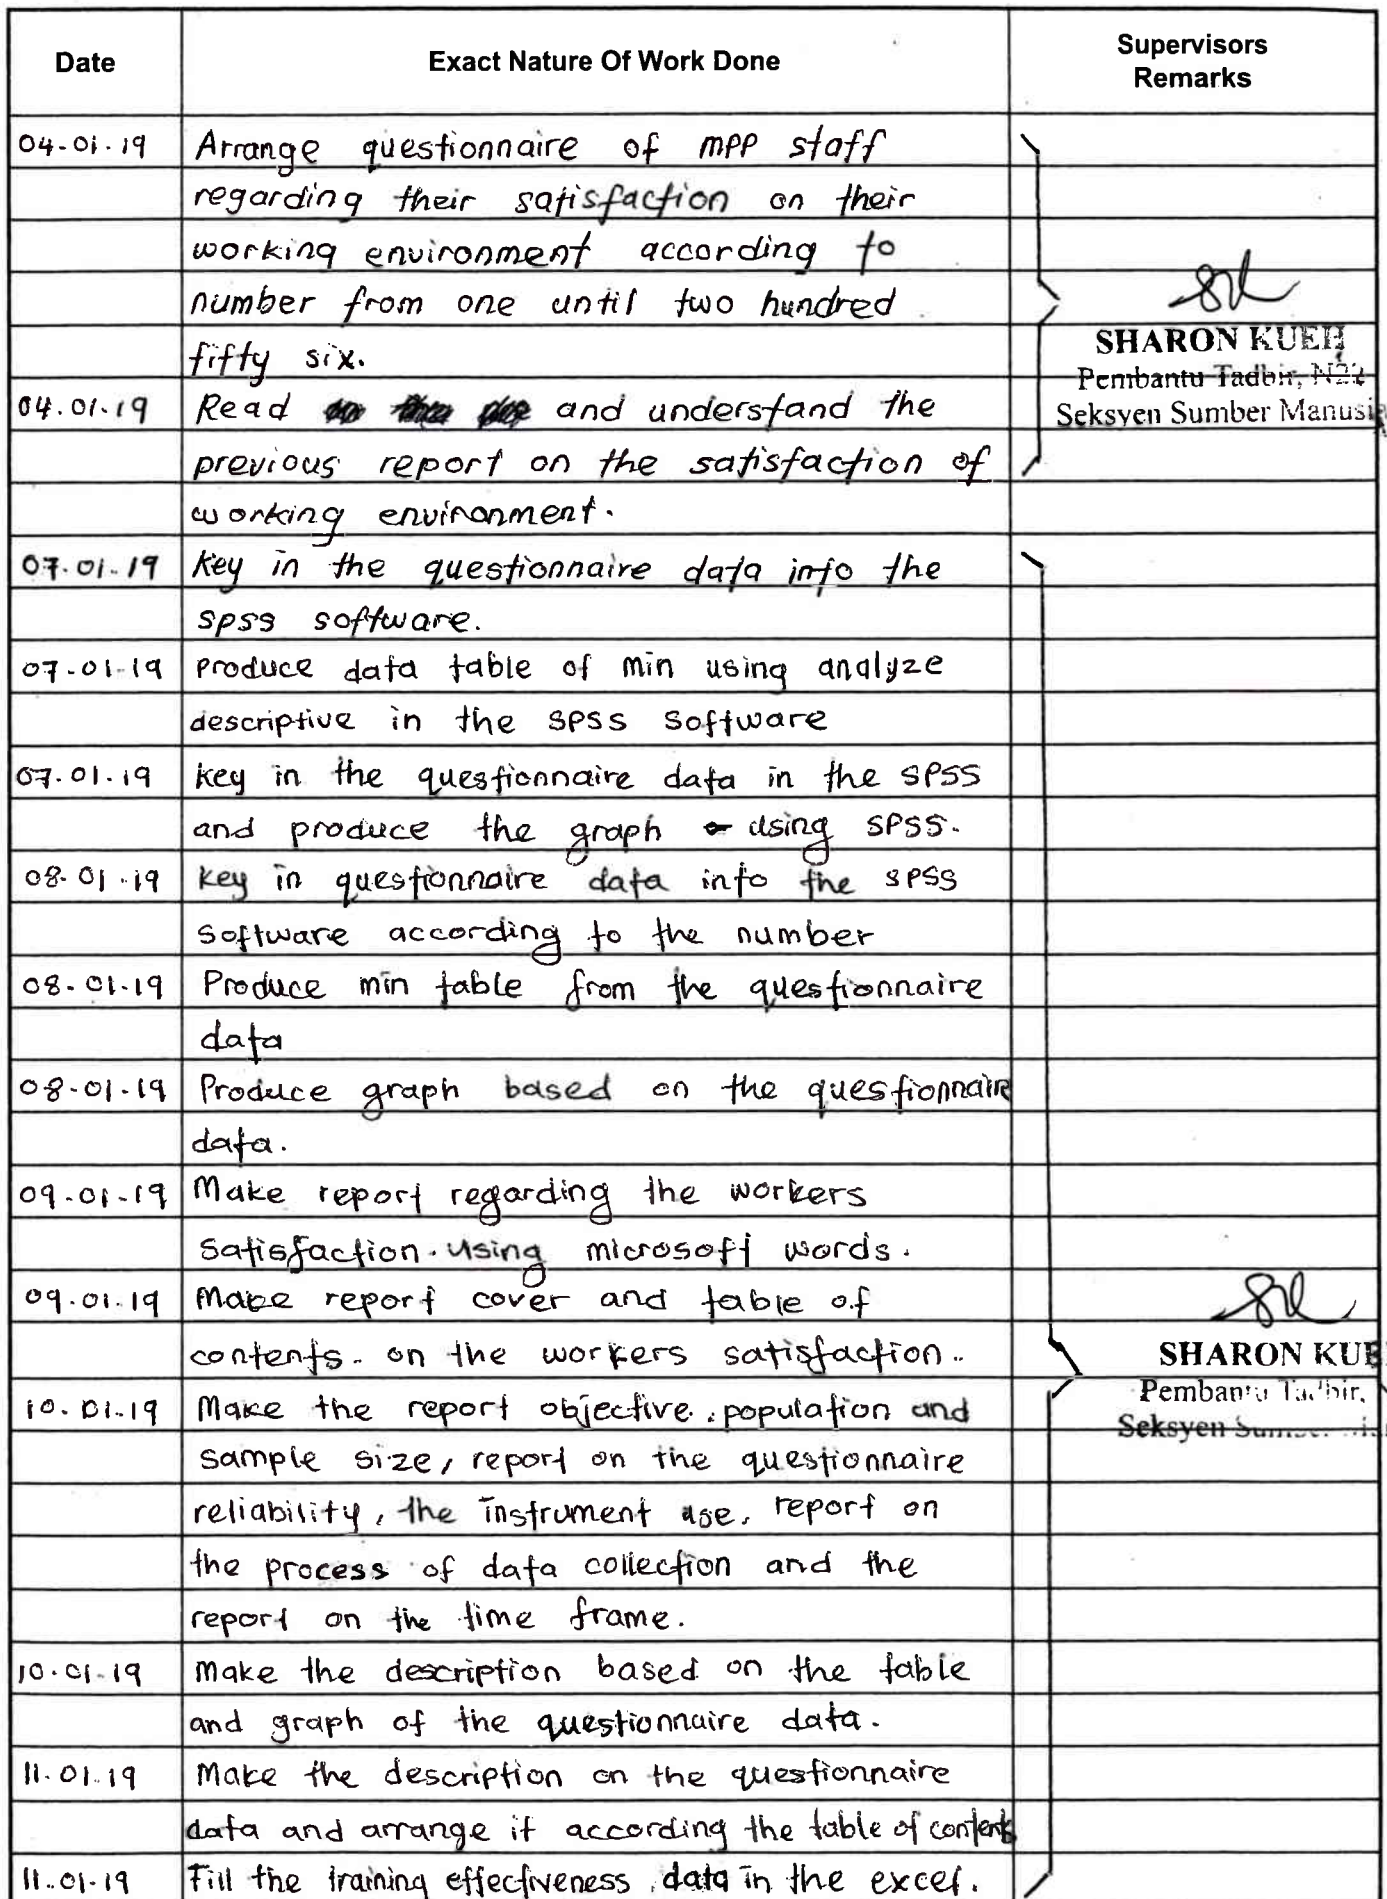 Date Exact Nature Of Work Done Supervisors
Remarks
04.01.19 Arrange questionnaire of MPP staff
regarding their satisfaction on their
working environment according to
number from one until two hundred
fifty six.
SHARON KUEH
Pembantu Tadbir, N22
Seksyen Sumber Manusia
04.01.19 Read and understand the
previous report on the satisfaction of
working environment.
07.01.19 Key in the questionnaire data into the
SPSS software.
07.01.19 Produce data table of min using analyze
descriptive in the SPSS software
07.01.19 Key in the questionnaire data in the SPSS
and produce the graph using SPSS.
08.01.19 Key in questionnaire data into the SPSS
software according to the number
08.01.19 Produce min table from the questionnaire
data
08.01.19 Produce graph based on the questionnaire
data.
09.01.19 Make report regarding the workers
satisfaction. using microsoft words.
09.01.19 Make report cover and table of
contents. on the workers satisfaction..
SHARON KUE
Pembantu Tadbir,
Seksyen
10.01.19 Make the report objective, population and
sample size, report on the questionnaire
reliability, the instrument use, report on
the process of data collection and the
report on the time frame.
10.01.19 Make the description based on the table
and graph of the questionnaire data.
11.01.19 Make the description on the questionnaire
data and arrange it according the table of contents
11.01.19 Fill the training effectiveness data in the excel.